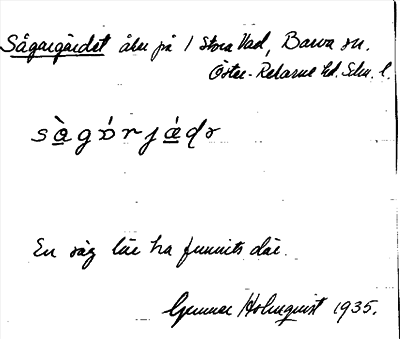 Sågargärdet åker på 1 Stora Vad, Barva sn.
Öster-Rekarne hd. Söm. l.
sàgɒ́rjǽdə
En såg lär ha funnits där.
Gunnar Holmquist 1935.